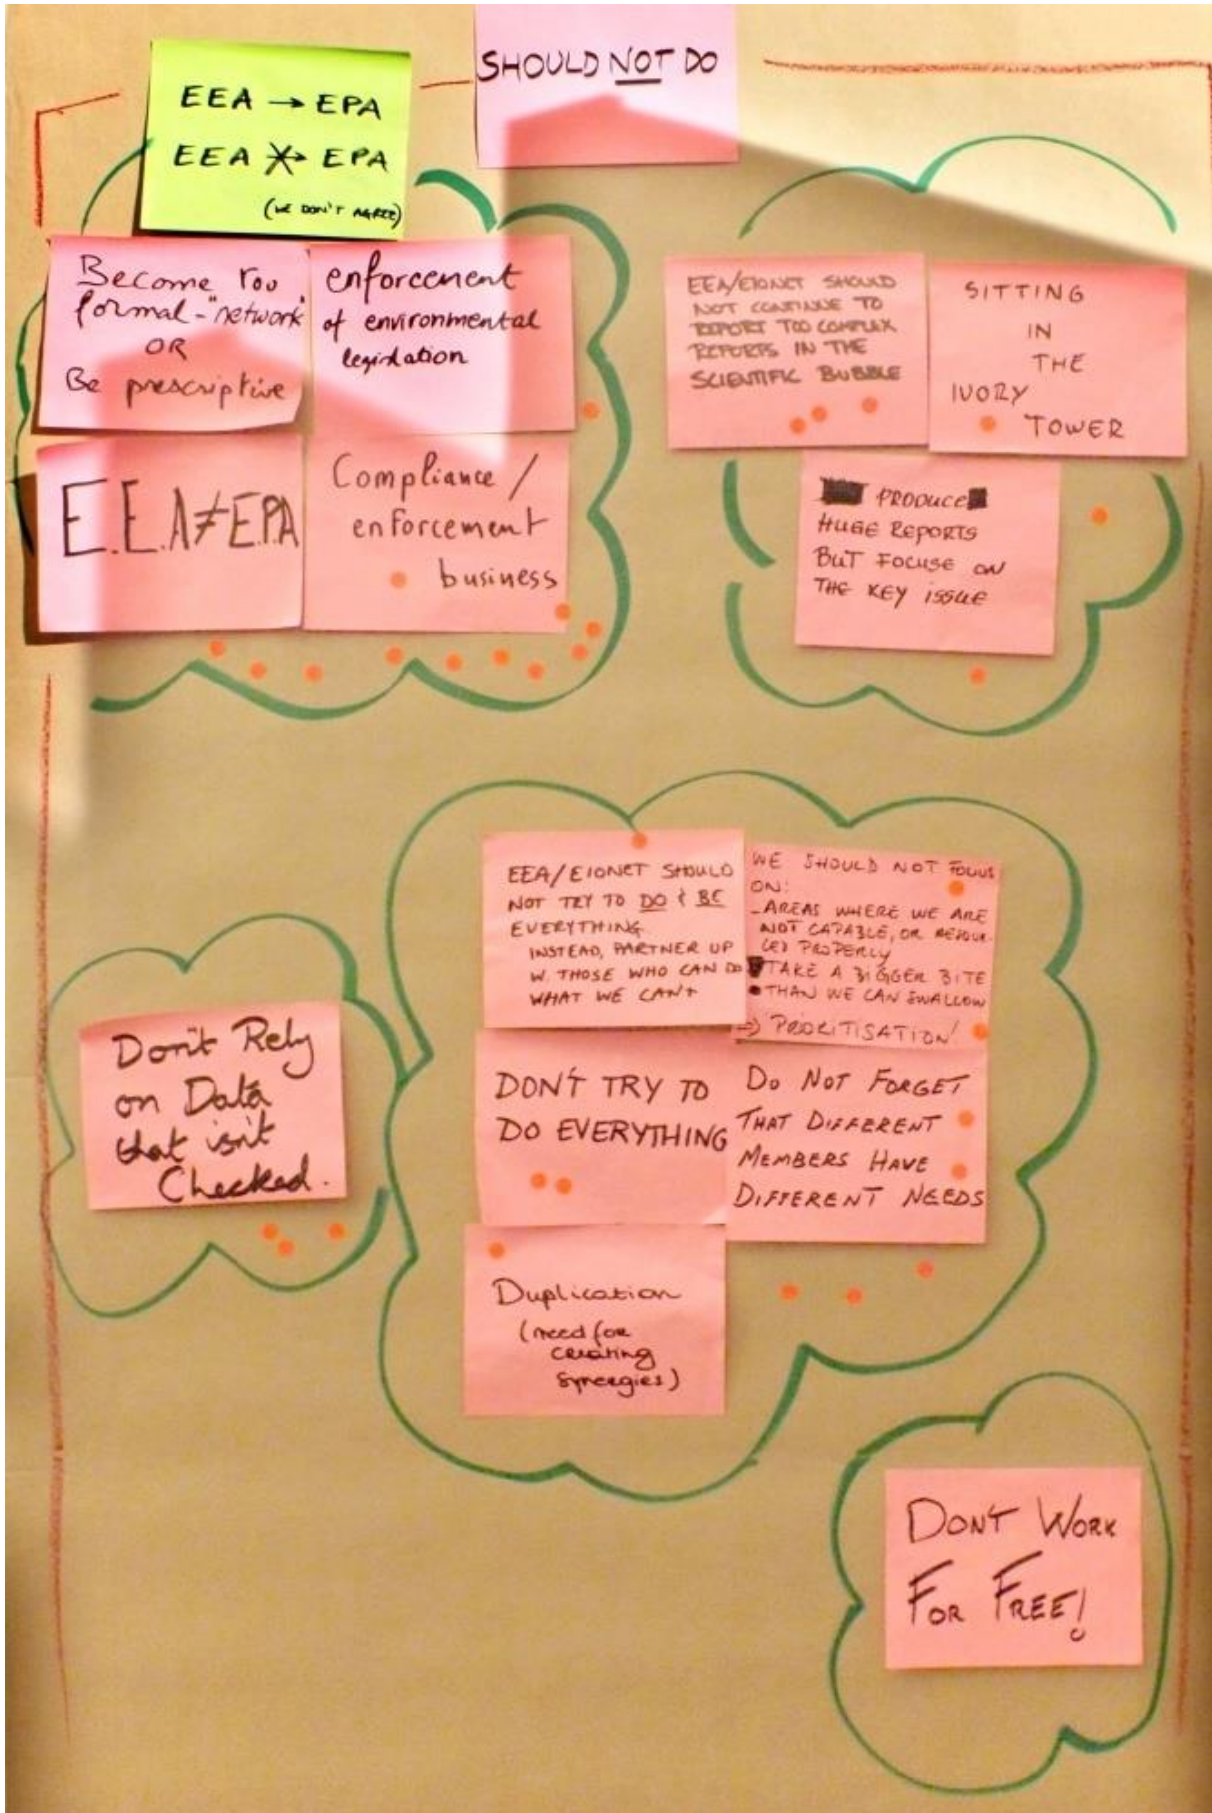 SHOULD NOT DO
EEA → EPA
EEA ↛ EPA
(WE DON'T AGREE)
Become too
formal - "network"
OR
Be prescriptive
enforcement
of environmental
legislation
E.E.A ≠ E.P.A
Compliance /
enforcement
business
EEA/EIONET SHOULD
NOT CONTINUE TO
REPORT TOO COMPLEX
REPORTS IN THE
SCIENTIFIC BUBBLE
SITTING
IN
THE
IVORY
TOWER
PRODUCE
HUGE REPORTS
BUT FOCUSE ON
THE KEY ISSUE
EEA/EIONET SHOULD
NOT TRY TO DO & BE
EVERYTHING.
INSTEAD, PARTNER UP
W. THOSE WHO CAN DO
WHAT WE CAN'T
WE SHOULD NOT FOCUS
ON:
- AREAS WHERE WE ARE
NOT CAPABLE, OR RESOUR-
CED PROPERLY
TAKE A BIGGER BITE
THAN WE CAN SWALLOW
=> PRIORITISATION!
DON'T TRY TO
DO EVERYTHING
DO NOT FORGET
THAT DIFFERENT
MEMBERS HAVE
DIFFERENT NEEDS
Duplication
(need for
creating
synergies)
Don't Rely
on Data
that isn't
Checked.
DONT WORK
FOR FREE!